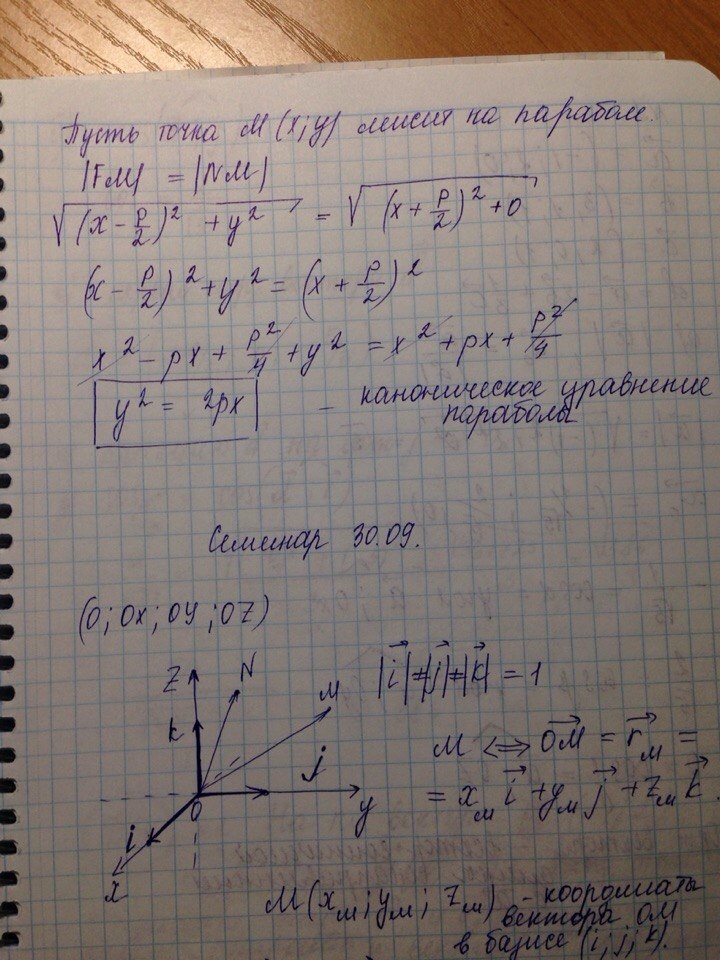 Пусть точка M (x; y) лежит на параболе.
|FM| = |NM|
√((x - p/2)² + y²) = √((x + p/2)² + 0)
(x - p/2)² + y² = (x + p/2)²
x² - px + p²/4 + y² = x² + px + p²/4
y² = 2px - каноническое уравнение
параболы
Семинар 30.09.
(O; OX; OY; OZ)
Z N M
k
|i⃗|=|j⃗|=|k⃗| = 1
M ⟺ OM⃗ = r⃗м =
j
= xм i⃗ + yм j⃗ + zм k⃗.
O y
i
x
M (xм; yм; zм) - координаты
вектора OM
в базисе (i; j; k).